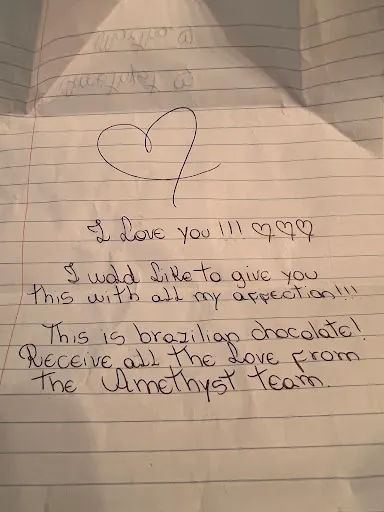 I Love you !!! ♡♡♡
I wold like to give you
this with all my affection!!!
This is brazilian chocolate!
Receive all the love from
the Amethyst team.